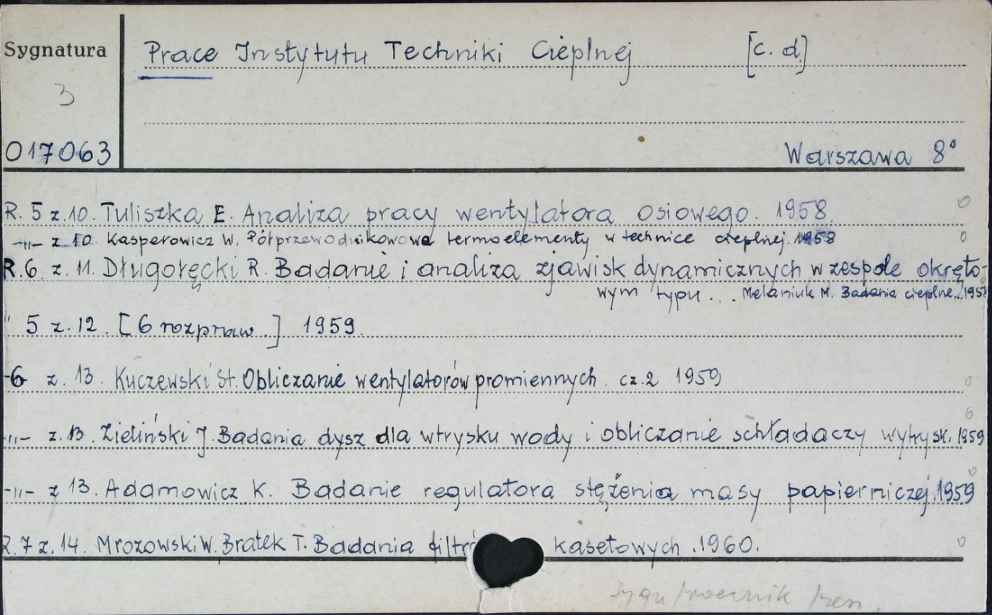 Sygnatura
Prace Instytutu Techniki Cieplnej [c. d.]
3
017063
Warszawa 8°
R. 5 z. 10. Tuliszka E. Analiza pracy wentylatora osiowego. 1958.
-"- z. 10. Kasperowicz W. Półprzewodnikowowe termoelementy w technice cieplnej 1958
R. 6. z. 11. Długoręcki R. Badanie i analiza zjawisk dynamicznych w zespole okręto-
wym typu ... Melaniuk M. Badania cieplne..
" 5 z. 12. [6 rozpraw.] 1959.
-6 z. 13. Kuczewski St. Obliczanie wentylatorów promiennych. cz. 2 1959
-"- z. 13. Zieliński J. Badania dysz dla wtrysku wody i obliczanie schładaczy wytrysk. 1959
-"- z 13. Adamowicz K. Badanie regulatora stężenia masy papierniczej. 1959
R. 7 z. 14. Mrozowski W. Bratek T. Badania kasetowych. 1960.